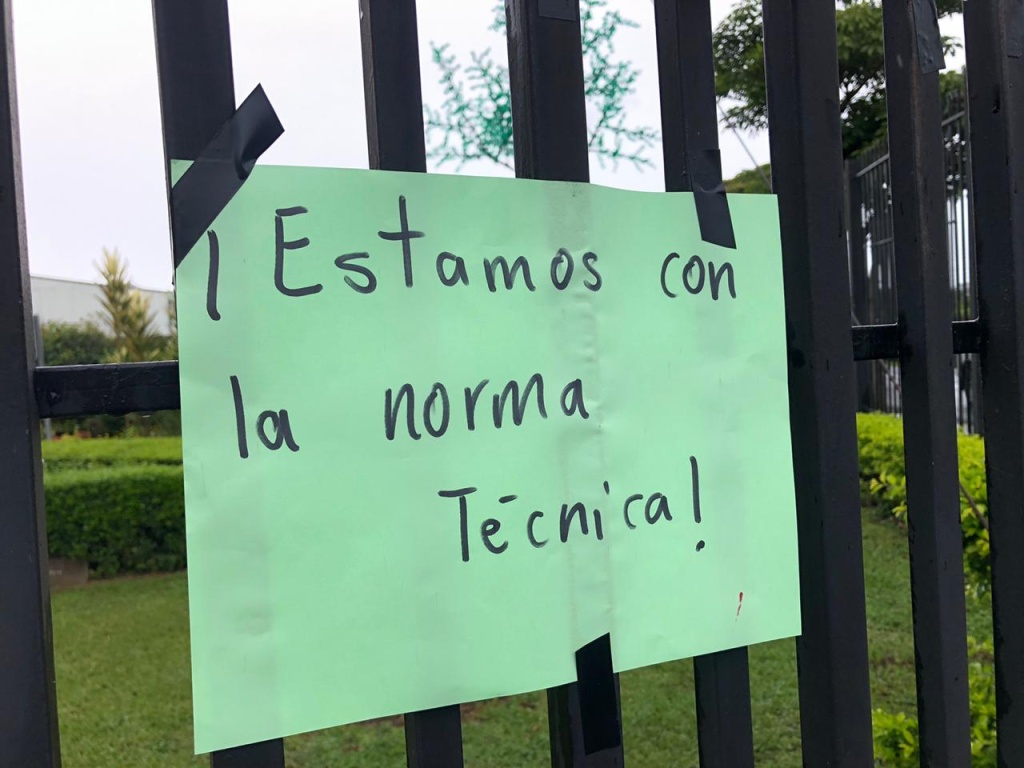 ¡Estamos con
la norma
Técnica!